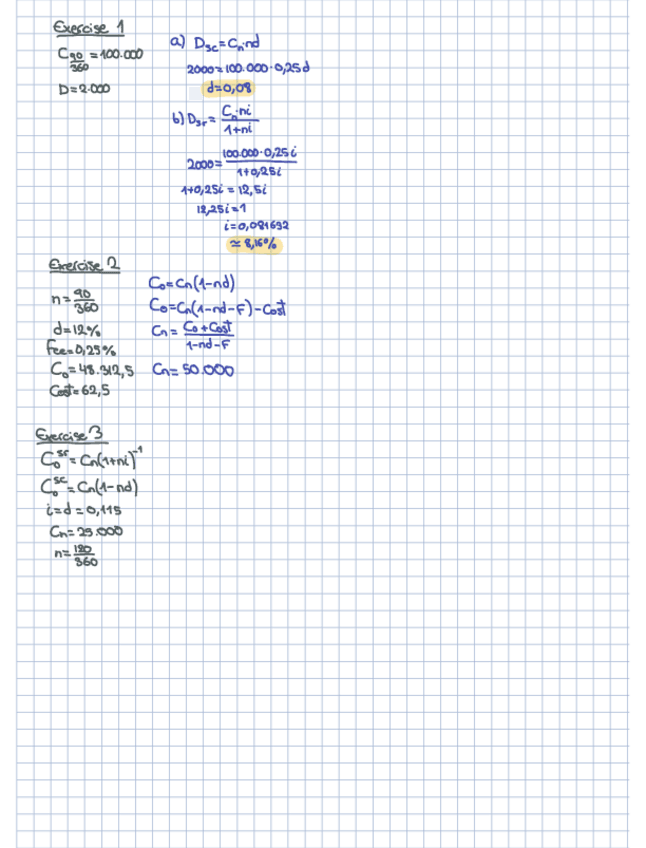 Exercise 1
C90/360 = 100.000
D = 2.000
a) Dsc = Cn·nd
2000 = 100.000 · 0,25d
d = 0,08
b) Dsr = Cn·ni / 1+ni
2000 = 100.000·0,25i / 1+0,25i
1+0,25i = 12,5i
12,25i = 1
i = 0,081632
≃ 8,16%
Exercise 2
n = 90/360
d = 12%
Fee = 0,25%
Co = 48.312,5
Cost = 62,5
Co = Cn(1-nd)
Co = Cn(1-nd-F)-Cost
Cn = Co+Cost / 1-nd-F
Cn = 50.000
Exercise 3
Co^sr = Cn(1+ni)^-1
Co^sc = Cn(1-nd)
i = d = 0,115
Cn = 25.000
n = 120/360